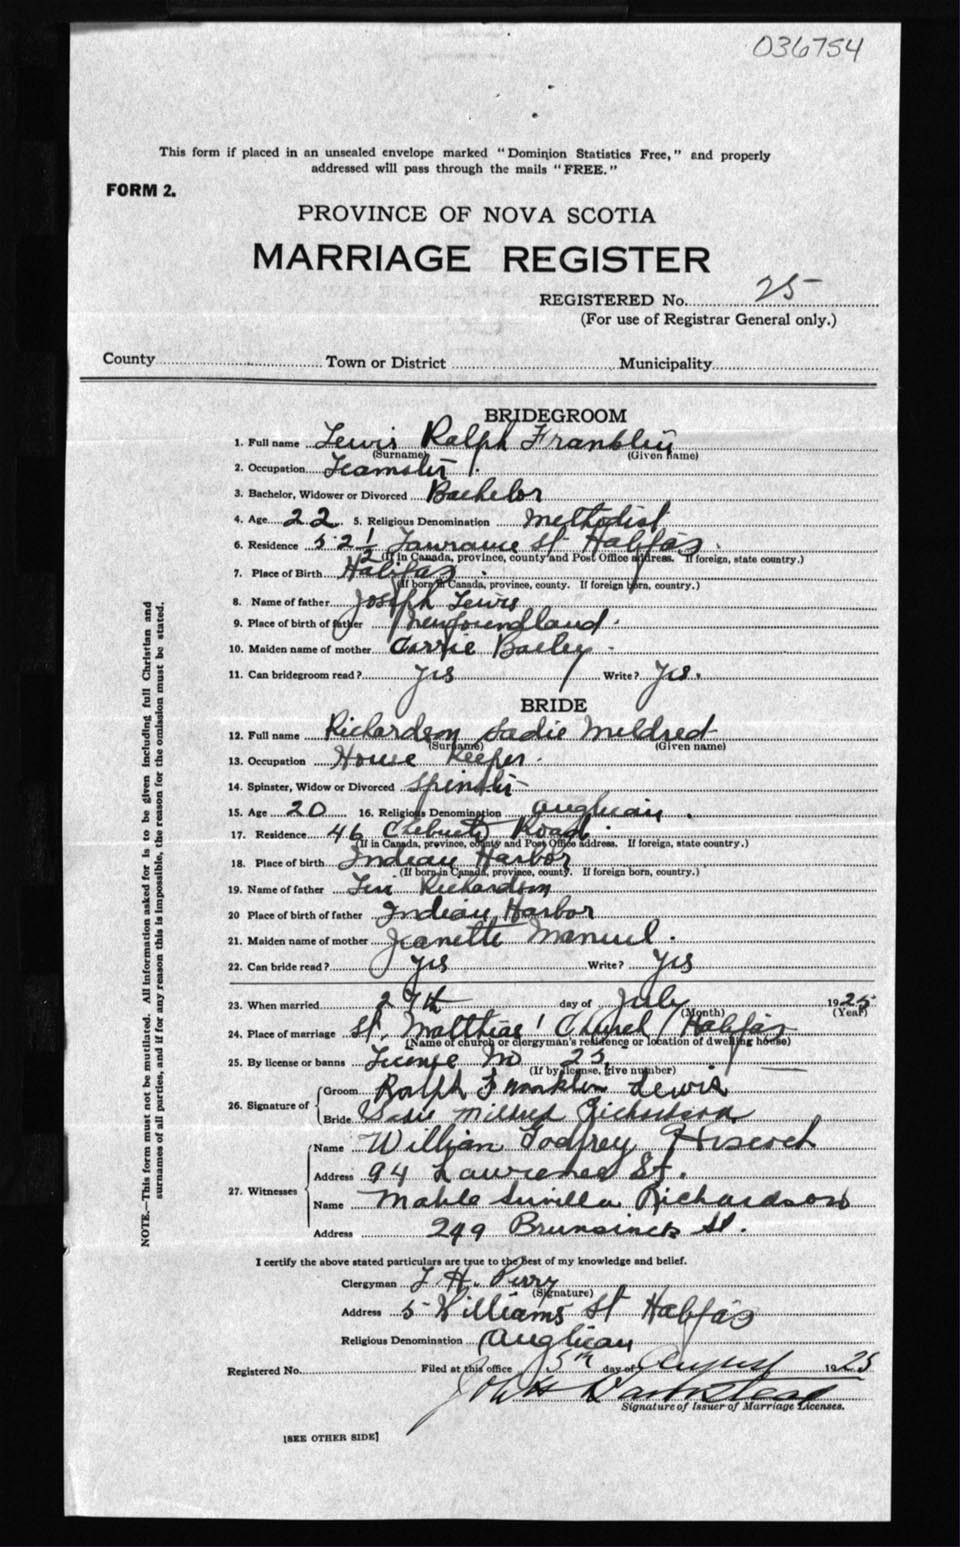 036754
This form if placed in an unsealed envelope marked "Dominion Statistics Free," and properly
addressed will pass through the mails "FREE."
FORM 2.
PROVINCE OF NOVA SCOTIA
MARRIAGE REGISTER
REGISTERED No. 25
(For use of Registrar General only.)
County Town or District Municipality
BRIDEGROOM
1. Full name Lewis Ralph Franklin
(Surname) (Given name)
2. Occupation Teamster
3. Bachelor, Widower or Divorced Bachelor
4. Age 22 5. Religious Denomination Methodist
6. Residence 52 1/2 Lawrance St Halifax
(If in Canada, province, county and Post Office address. If foreign, state country.)
7. Place of Birth Halifax
(If born in Canada, province, county. If foreign born, country.)
8. Name of father Joseph Lewis
9. Place of birth of father Newfoundland
10. Maiden name of mother Carrie Bailey
11. Can bridegroom read? Yes Write? Yes
BRIDE
12. Full name Richardson Sadie Mildred
(Surname) (Given name)
13. Occupation House Keeper
14. Spinster, Widow or Divorced Spinster
15. Age 20 16. Religious Denomination Anglican
17. Residence 46 Chebucto Road
(If in Canada, province, county and Post Office address. If foreign, state country.)
18. Place of birth Indian Harbor
(If born in Canada, province, county. If foreign born, country.)
19. Name of father Richardson
20 Place of birth of father Indian Harbor
21. Maiden name of mother Jeanette Manuel
22. Can bride read? Yes Write? Yes
23. When married 27th day of July 1925
(Month) (Year)
24. Place of marriage St. Matthias' Church Halifax
(Name of church or clergyman's residence or location of dwelling house)
25. By license or banns License No 25
(If by license, give number)
26. Signature of Groom Ralph Franklin Lewis
Bride Sadie Mildred Richardson
27. Witnesses Name William Godfrey Hiscock
Address 94 Lawrence St.
Name Mable Richardson
Address 249 Brunsinck St.
I certify the above stated particulars are true to the best of my knowledge and belief.
Clergyman T. H. Perry
(Signature)
Address 5 Williams St Halifax
Religious Denomination Anglican
Registered No. Filed at this office 5th day of August 1925
John
Signature of Issuer of Marriage Licenses.
[SEE OTHER SIDE]
NOTE.—This form must not be mutilated. All information asked for is to be given including full Christian and
surnames of all parties, and if for any reason this is impossible, the reason for the omission must be stated.